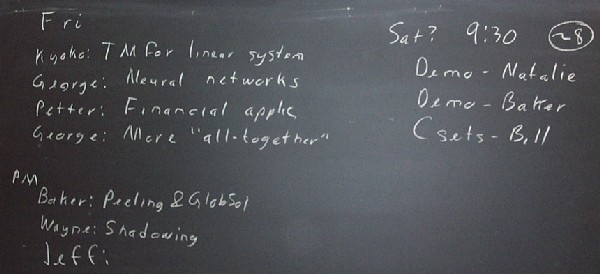 Fri
Kyoko: TM for linear system
George: Neural networks
Petter: Financial applic
George: More "all-together"
PM
Baker: Peeling & GlobSol
Wayne: Shadowing
Jeff:
Sat? 9:30 ~8
Demo - Natalie
Demo - Baker
Csets - Bill